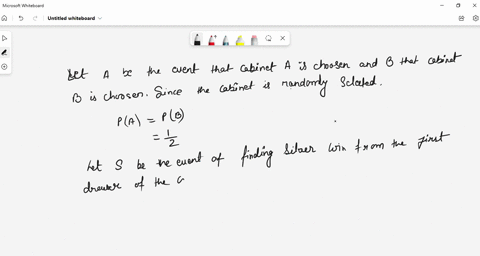 Microsoft Whiteboard
Untitled whiteboard
Let A be the event that cabinet A is choosen and B that cabinet
B is choosen. Since the cabinet is randomly Selected.
P(A) = P(B)
= 1/2
Let S be the event of finding Silver coin from the first
drawer of the c